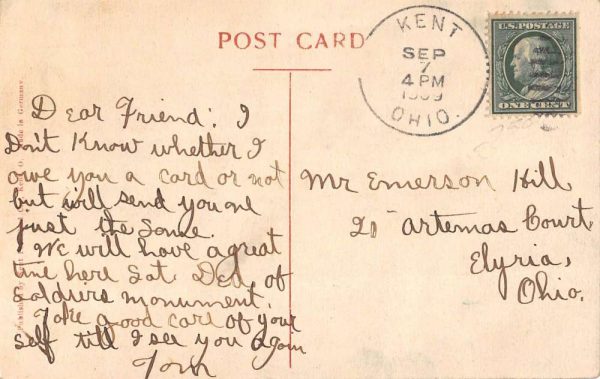 POST CARD
KENT
SEP
7
4 PM
1909
OHIO.
U.S. POSTAGE
ONE CENT
Dear Friend: I
Don't Know whether I
owe you a card or not
but will send you one
just the same.
We will have a great
time here Sat. Ded. of
Soldiers monument.
Take good care of your
self till I see you again
Tom
Mr Emerson Hill
20 Artemas Court
Elyria,
Ohio.
Published by
O. Made in Germany.